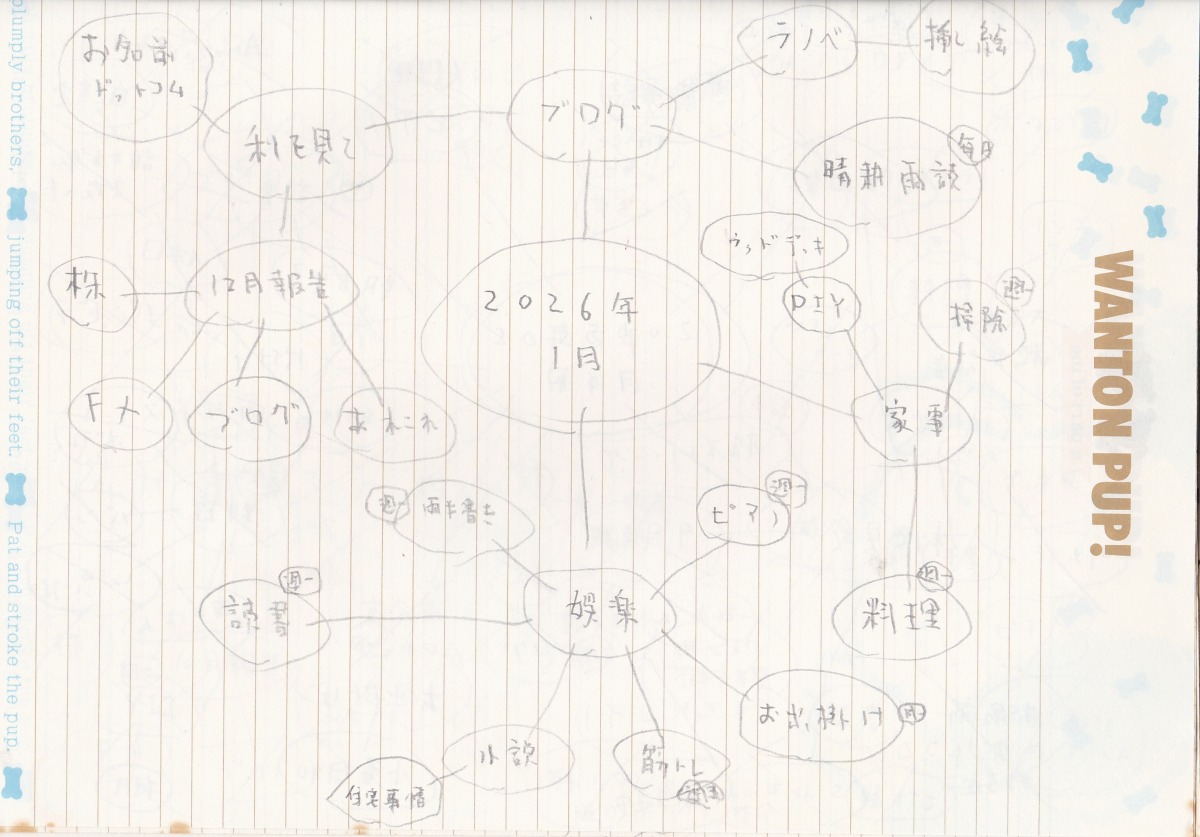 olumply brothers.
jumping off their feet.
Pat and stroke the pup.
WANTON PUP!
お名前
ドットコム
利を見て
ブログ
ラノベ
挿し絵
晴耕雨読
毎日
ウッドデッキ
DIY
掃除
週一
株
12月報告
2026年
1月
家事
FX
ブログ
あれこれ
週一
両手書き
ピアノ
週一
読書
週一
娯楽
料理
週一
お出掛け
小説
筋トレ
住宅事情